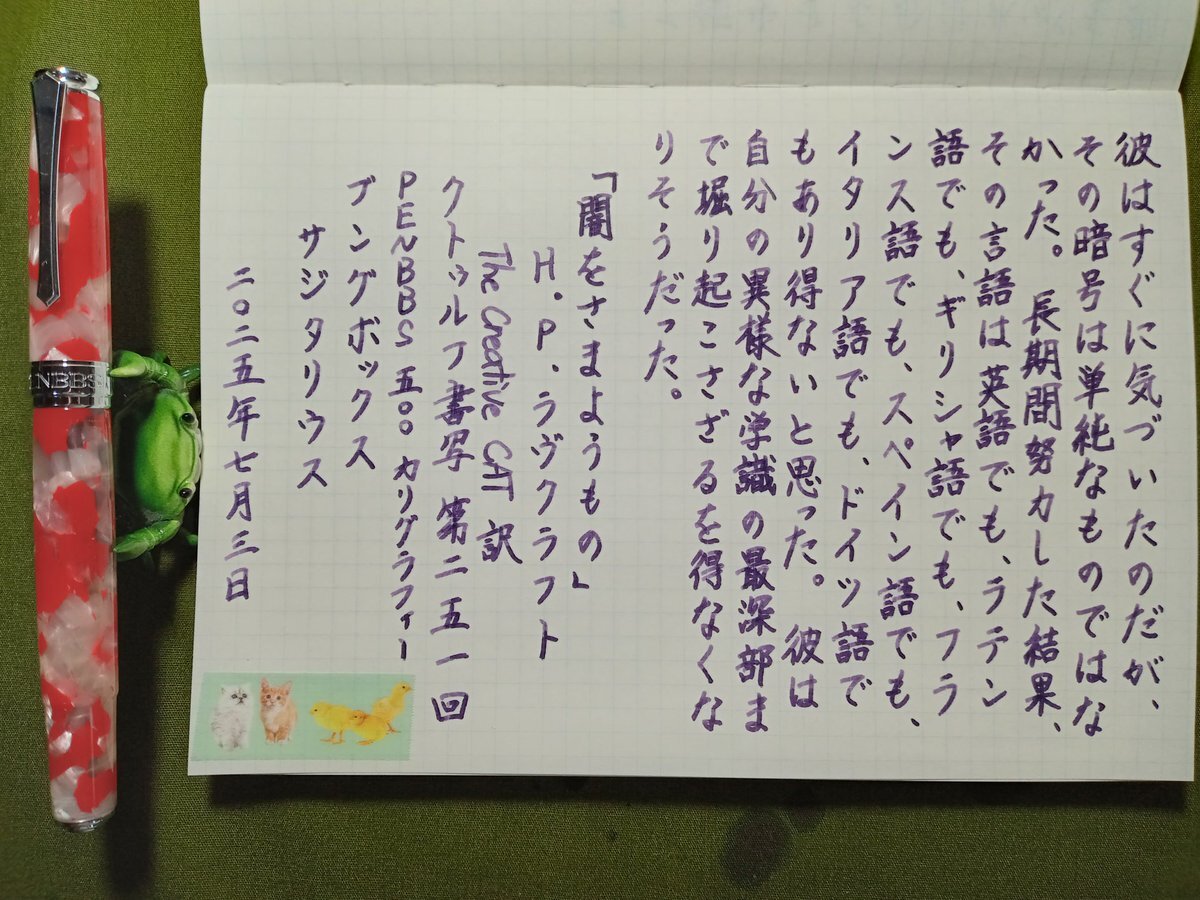 彼はすぐに気づいたのだが、
その暗号は単純なものではな
かった。 長期間努力した結果、
その言語は英語でも、ラテン
語でも、ギリシャ語でも、フラ
ンス語でも、スペイン語でも、
イタリア語でも、ドイツ語で
もあり得ないと思った。 彼は
自分の異様な学識の最深部ま
で堀り起こさざるを得なくな
りそうだった。
「闇をさまようもの」
H.P.ラヴクラフト
The Creative CAT 訳
クトゥルフ書写 第二五一回
PENBBS 五〇〇 カリグラフィー
ブングボックス
サジタリウス
二〇二五年七月三日
ENBBS